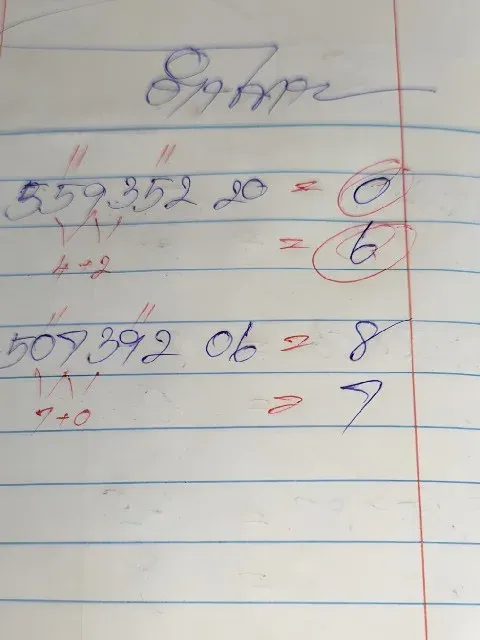 559352 20 = 0
4+2 = 6
507392 06 = 8
7+0 = 7